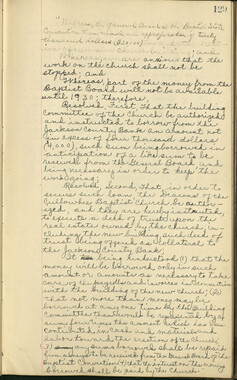 129
"Whereas, the General Board of the Baptist State
Convention has made an appropriation of twenty
thousand dollars
Whereas, we are anxious that the
work on the church shall not be
stopped; and
Whereas, part of the money from the
Baptist Board will not be available
until 1930; therefore,
Resolved, First, That the building
committee of the Church be authorized
and instructed to borrow from the
Jackson County Bank an amount not
in excess of four thousand dollars
(4,000), such sum being borrowed in
anticipation of a like sum to be
received from the General Board and
being necessary in order to keep the
work going;
Resolved, Second, That in order to
secure such loan the Deacons of the
Cullowhee Baptist Church be author-
ized, and they are hereby instructed
to execute a deed of trust upon the
real estate owned by the church, in-
cluding the new building, such deed of
trust being offered as collateral to
the Jackson County Bank;
It being understood (1) that the
money will be borrowed, only in such
amount or amounts as necessary to take
care of the payrolls and invoices in connection
with the building of the new church; (2)
that not more than money may be
borrowed at any one time by the building
Committee than would be represented by
contributed in cash and material and
labor toward the erection of the Church;
(3) any sum borrowed shall be repaid
from a sum to be received from the General Board of the
Baptist Convention; (4) that the interest on the money
borrowed shall be paid by the Church."